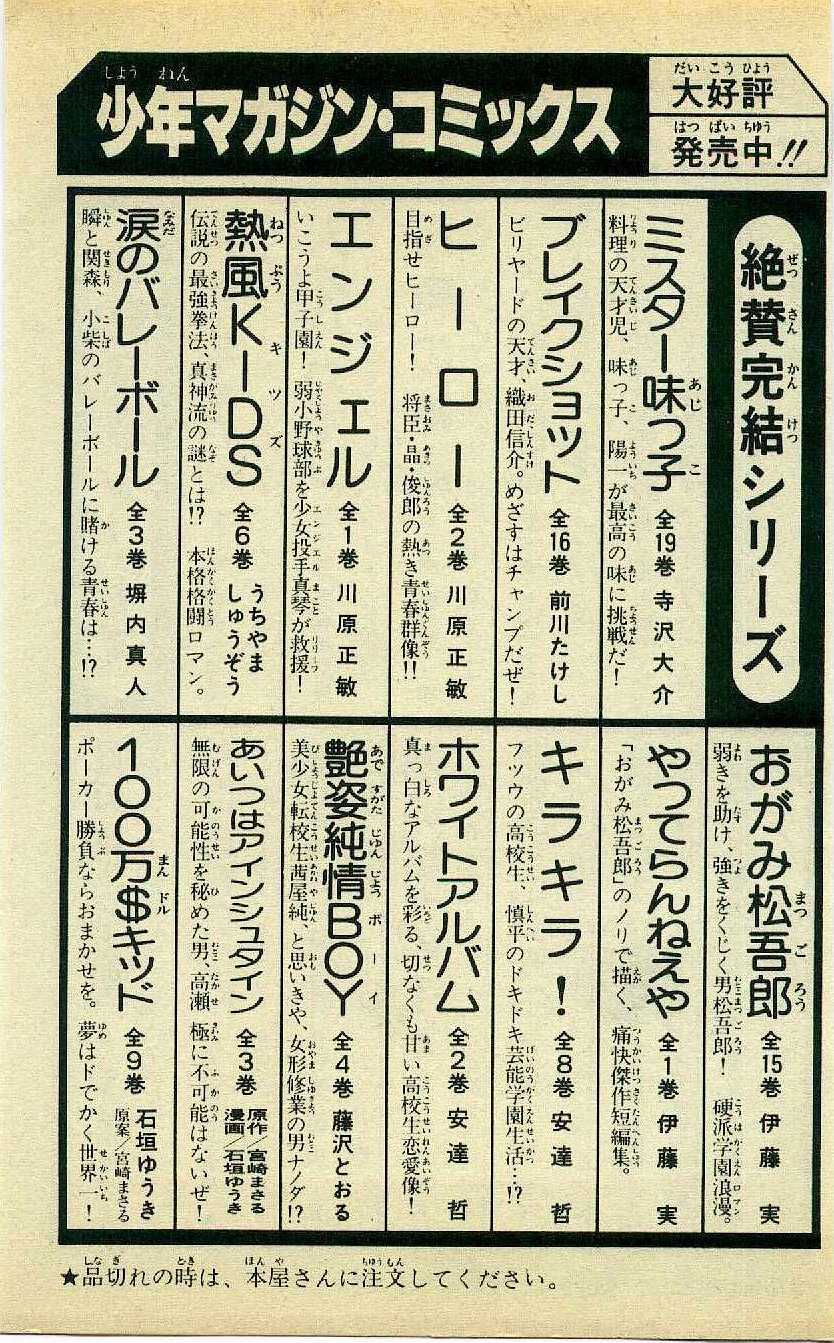 少年マガジン・コミックス
大好評
発売中!!
絶賛完結シリーズ
ミスター味っ子 全19巻 寺沢大介
料理の天才児、味っ子、陽一が最高の味に挑戦だ!
ブレイクショット 全16巻 前川たけし
ビリヤードの天才、織田信介。めざすはチャンプだぜ!
ヒーロー 全2巻 川原正敏
目指せヒーロー! 将臣・晶・俊郎の熱き青春群像!!
エンジェル 全1巻 川原正敏
いこうよ甲子園! 弱小野球部を少女投手真琴が救援!
熱風KIDS 全6巻 うちやましゅうぞう
伝説の最強拳法、真神流の謎とは!? 本格格闘ロマン。
涙のバレーボール 全3巻 塀内真人
瞬と関森、小柴のバレーボールに賭ける青春は…!?
おがみ松吾郎 全15巻 伊藤実
弱きを助け、強きをくじく男松吾郎! 硬派学園浪漫。
やってらんねえや 全1巻 伊藤実
「おがみ松吾郎」のノリで描く、痛快傑作短編集。
キラキラ! 全8巻 安達哲
フツウの高校生、慎平のドキドキ芸能学園生活…!?
ホワイトアルバム 全2巻 安達哲
真っ白なアルバムを彩る、切なくも甘い高校生恋愛像!
艶姿純情BOY 全4巻 藤沢とおる
美少女転校生茜屋純、と思いきや、女形修業の男ナノダ!?
あいつはアインシュタイン 全3巻 原作/宮崎まさる 漫画/石垣ゆうき
無限の可能性を秘めた男、高瀬極に不可能はないぜ!
100万$キッド 全9巻 石垣ゆうき 原案/宮崎まさる
ポーカー勝負ならおまかせを。夢はドでかく世界一!
★品切れの時は、本屋さんに注文してください。